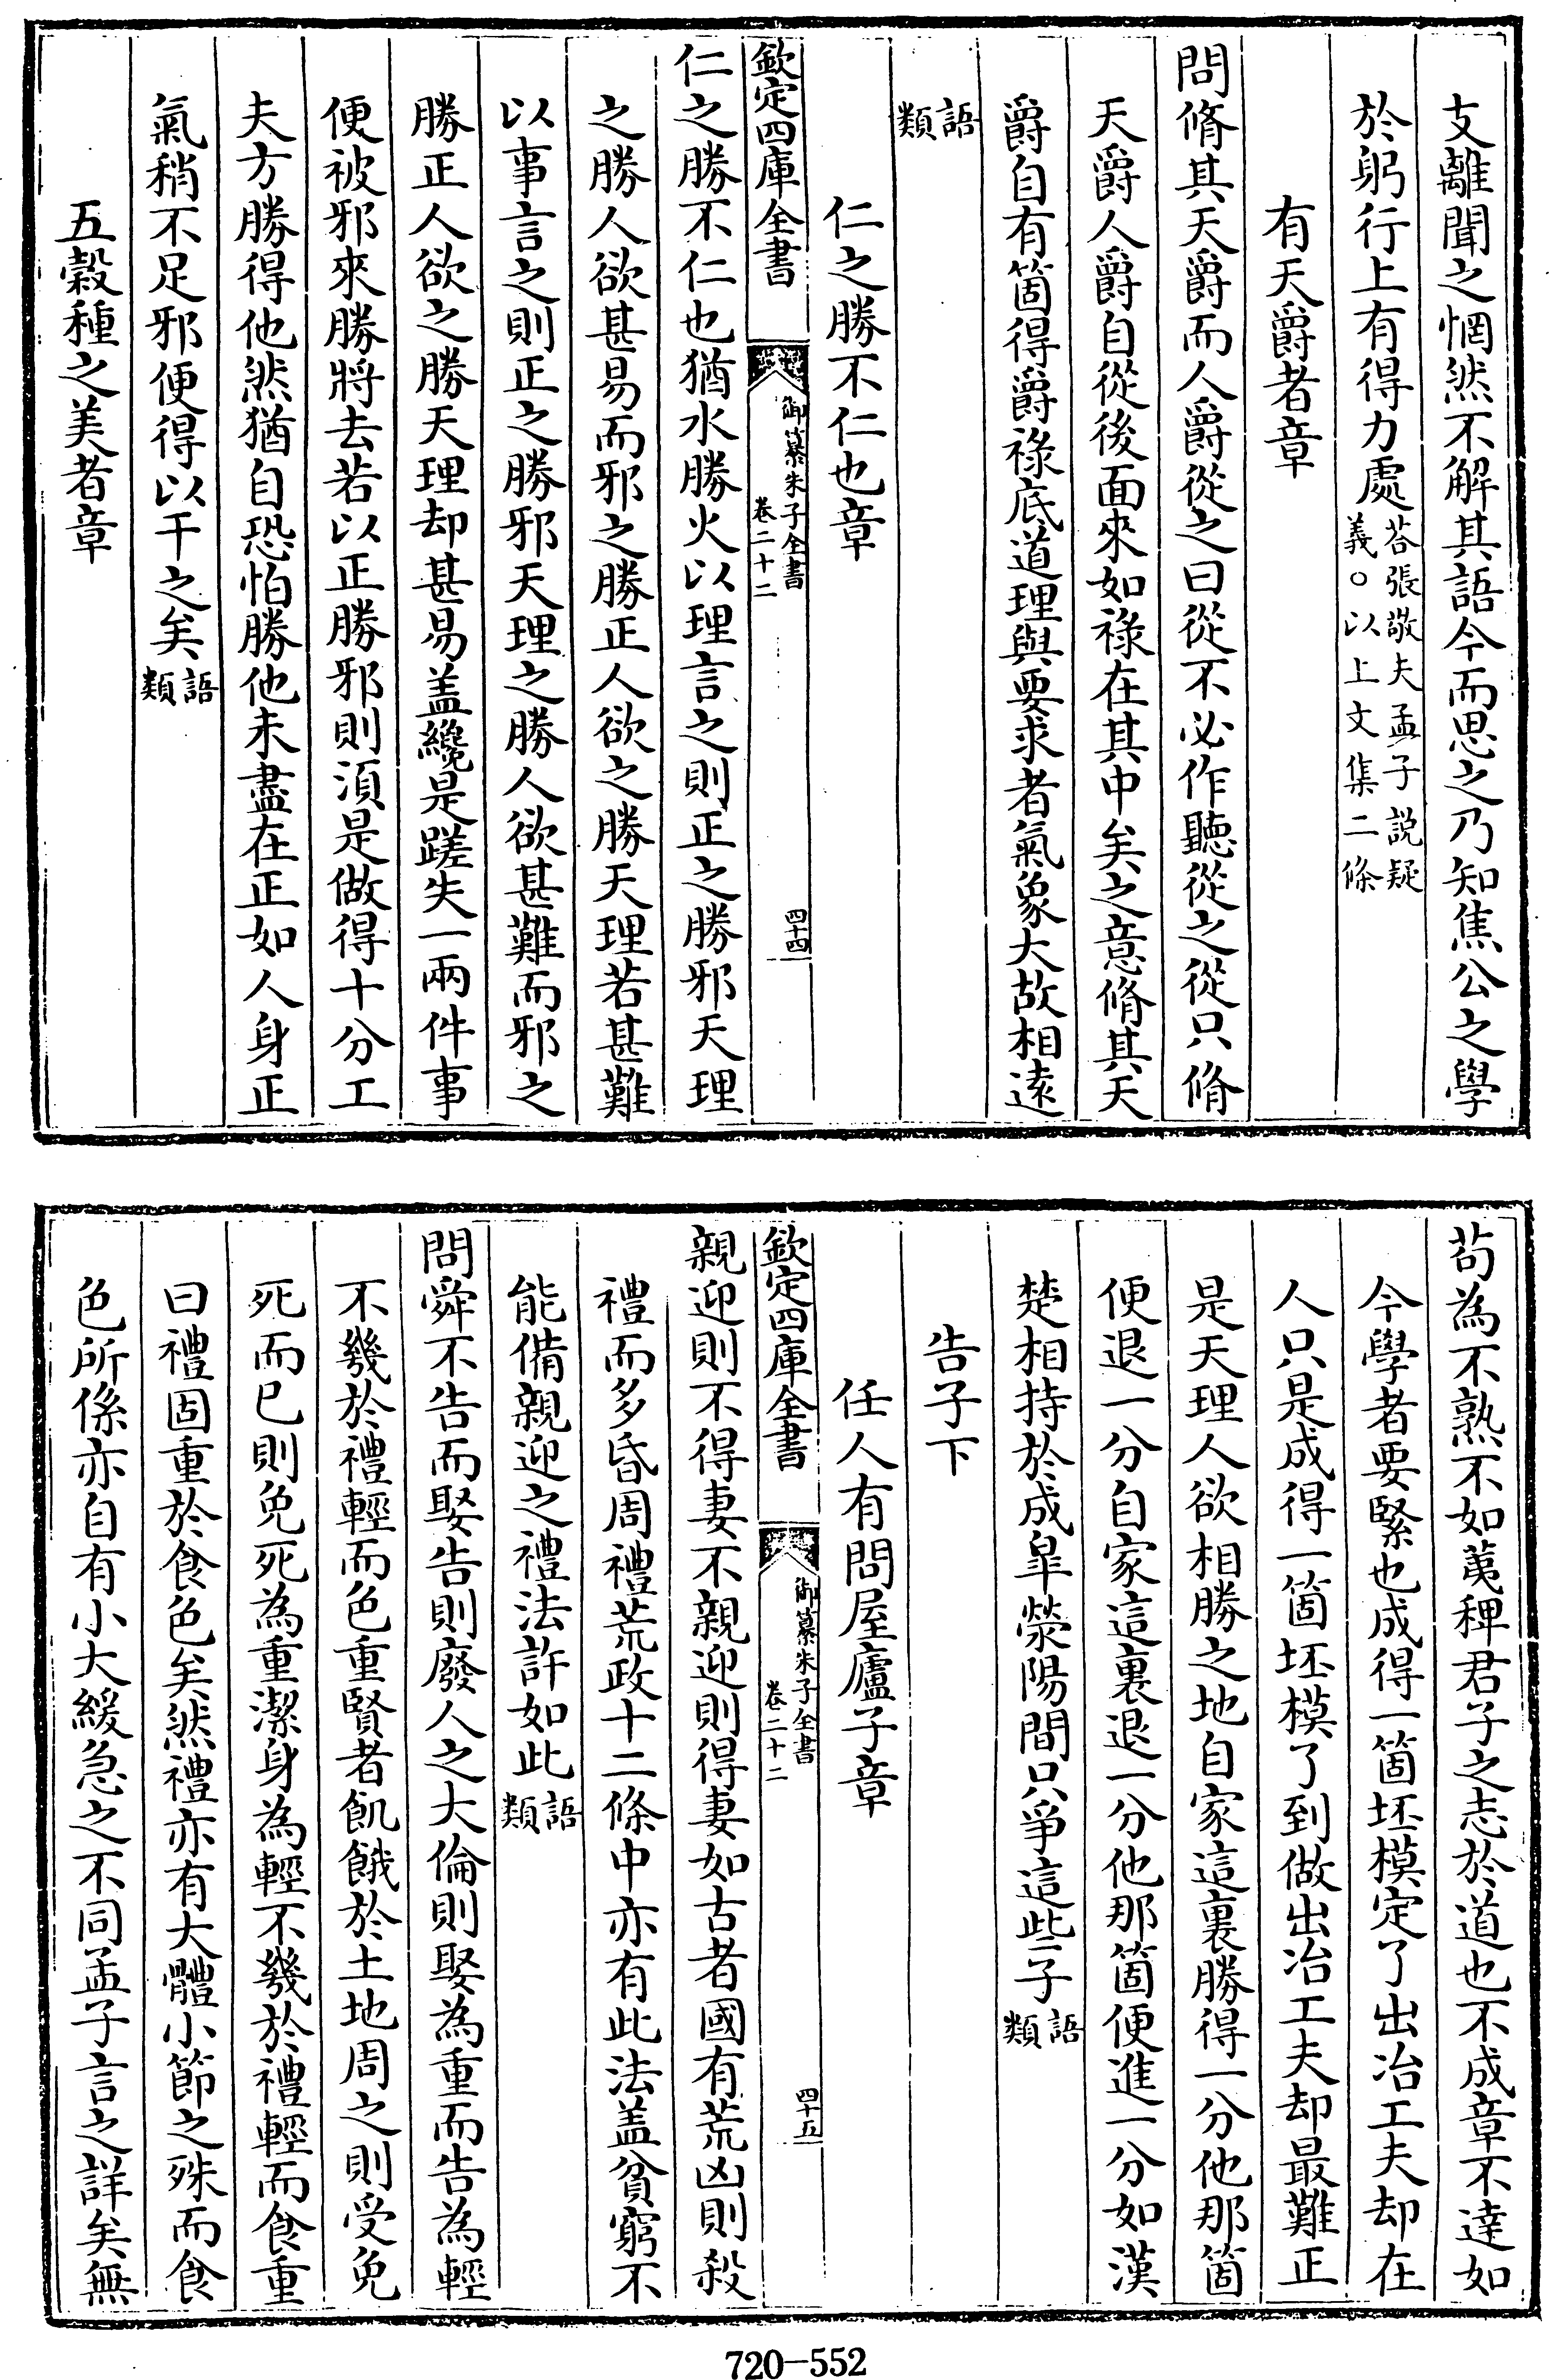 支離聞之惘然不解其語今而思之乃知焦公之學
於躬行上有得力處荅張敬夫孟子説疑義○以上文集二條
有天爵者章
問脩其天爵而人爵從之曰從不必作聽從之從只脩
天爵人爵自從後面來如祿在其中矣之意脩其天
爵自有箇得爵祿底道理與要求者氣象大故相遠
語類
仁之勝不仁也章
欽定四庫全書
御纂朱子全書
卷二十二
四十四
仁之勝不仁也猶水勝火以理言之則正之勝邪天理
之勝人欲甚易而邪之勝正人欲之勝天理若甚難
以事言之則正之勝邪天理之勝人欲甚難而邪之
勝正人欲之勝天理却甚易盖纔是蹉失一兩件事
便被邪來勝將去若以正勝邪則須是做得十分工
夫方勝得他然猶自恐怕勝他未盡在正如人身正
氣稍不足邪便得以干之矣語類
五榖種之美者章
苟為不熟不如荑稗君子之志於道也不成章不達如
今學者要緊也成得一箇坯模定了出冶工夫却在
人只是成得一箇坯模了到做出冶工夫却最難正
是天理人欲相勝之地自家這裏勝得一分他那箇
便退一分自家這裏退一分他那箇便進一分如漢
楚相持於成臯滎陽間只爭這些子語類
告子下
任人有問屋廬子章
欽定四庫全書
御纂朱子全書
卷二十二
四十五
親迎則不得妻不親迎則得妻如古者國有荒凶則殺
禮而多昏周禮荒政十二條中亦有此法盖貧窮不
能備親迎之禮法許如此語類
問舜不告而娶告則廢人之大倫則娶為重而告為輕
不幾於禮輕而色重賢者飢餓於土地周之則受免
死而已則免死為重潔身為輕不幾於禮輕而食重
曰禮固重於食色矣然禮亦有大體小節之殊而食
色所係亦自有小大緩急之不同孟子言之詳矣無
720-552